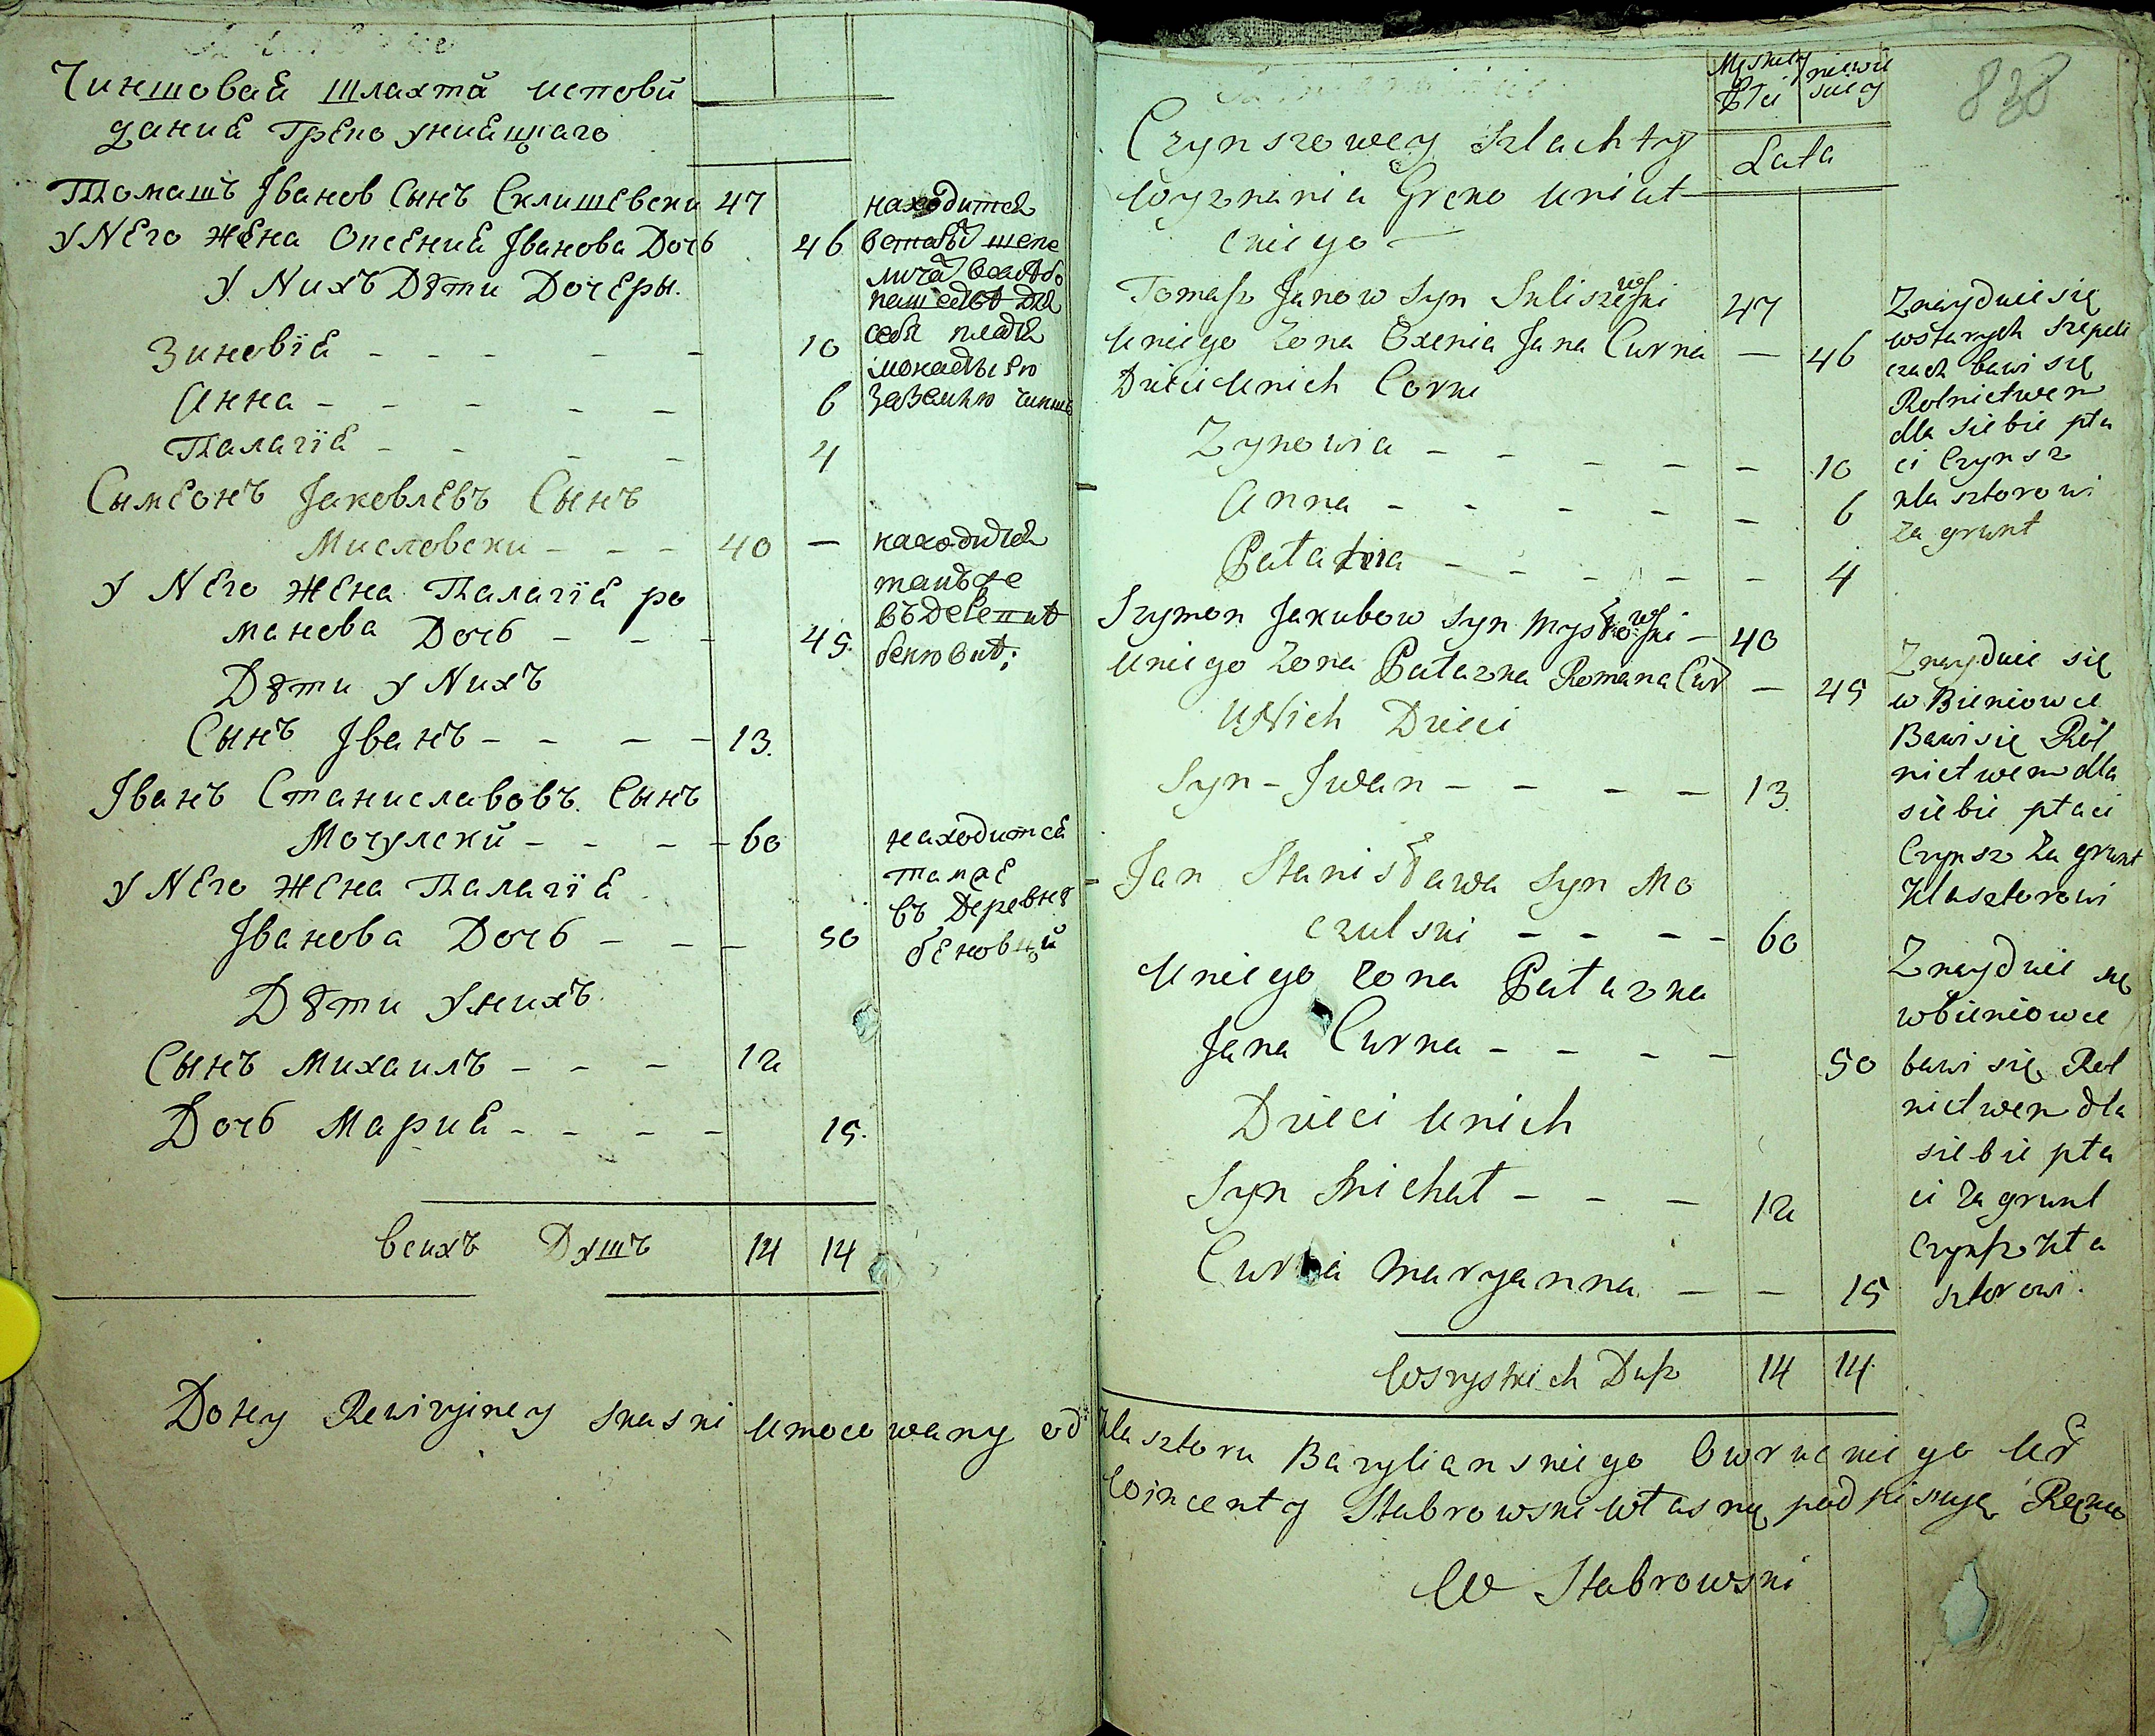 Чиншовая шлахта испови
дания Греко Униацкаго
Томашъ Іванов Сынъ Склишевски 47
У Него жена Опсения Іванова Дочь 46
У Нихъ Дѣти Дочеры.
Зиновія - - - - - 10
Анна - - - - - 6
Палагія - - - - 4
Сымеонъ Јаковлевъ Сынъ
Мисловски - - - 40 —
У Него жена Палагія ро
манова Дочь - - - 45.
Дѣти у Нихъ
Сынъ Іванъ - - - - 13.
Іванъ Станиславовъ Сынъ
Мочулский - - - - 60
У Него жена Палагія
Іванова Дочь - - - 50
Дѣти у нихъ
Сынъ Михаилъ - - - 12
Дочь Мария - - - - 15.
всихъ Душъ 14 14
находится
находится
также
находится
тамже
въ Деревнѣ
беновцы
838
Męskiey Płci
niewie
skiey
Lata
Czynszowey Szlachty
Wyznania Greko Uniat
ckiego —
Tomasz Janow Syn Skliszewski 47
U niego Żona Oxenia Jana Curka — 46
Dzieci u nich Corki
Zynowia - - - - - 10
Anna - - - - - 6
Pałażia - - - - - 4
Szymon Jakubow Syn Mysłowski - 40
U niego Żona Pałazka Romana Cur — 45
U Nich Dzieci
Syn - Jwan - - - - 13.
Jan Stanisława Syn Mo
czulski - - - - 60
U niego Żona Pałazka
Jana Curka - - - - 50
Dzieci u nich
Syn Michał - - - 12
Curka Maryanna - - 15
Wszystkich Dusz 14 14
Znayduie się
w starych Szepeli
czach bawi się
Rolnictwem
dla siebie pła
ci Czynsz
kla sztorowi
za grunt
Znayduie się
w Bieniowce
Bawi się Rol
nictwem dla
siebie płaci
Czynsz za grunt
Klasztorowi
Znayduie się
w bieniowce
bawi się Rol
nictwem dla
siebie pła
ci za grunt
Czynsz Kla
sztorowi.
Do tey Rewizyiney skaski umocowany od Klasztoru Bazylianskiego Owruckiego Ur
Wincenty Stabrowski własną podpisuję Ręką
W Stabrowski